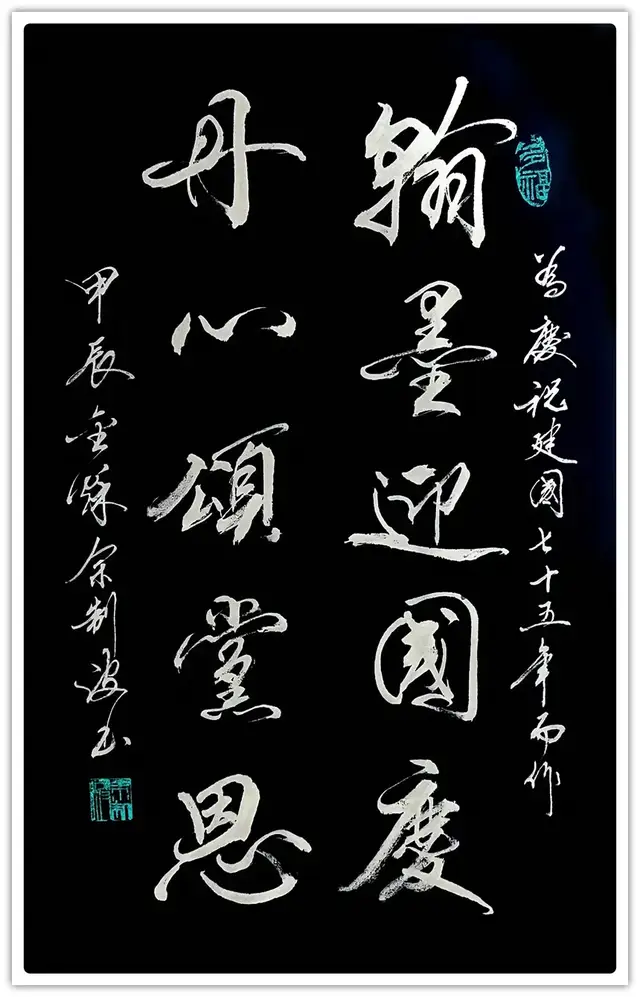 多福
為慶祝建國七十五年而作
翰墨迎國慶
丹心頌黨恩
甲辰金秋余制波书